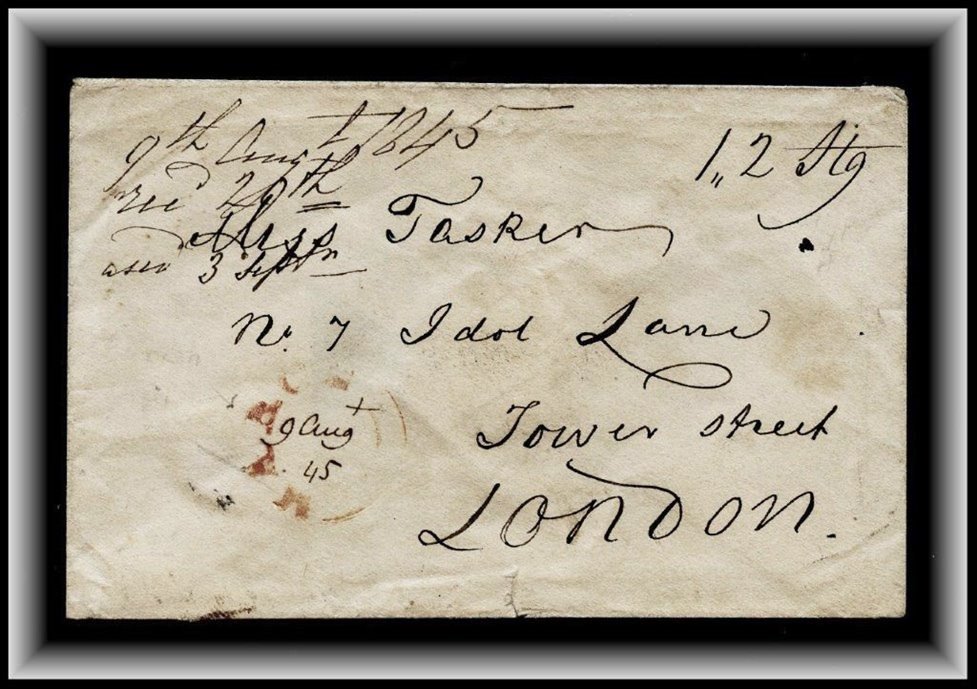 9th Augt 1845
1,, 2 Stg
rec'd 29th
Miss Tasker
answd 3 Septr
No. 7 Idol Lane
9 Augt
45
Tower street
LONDON.